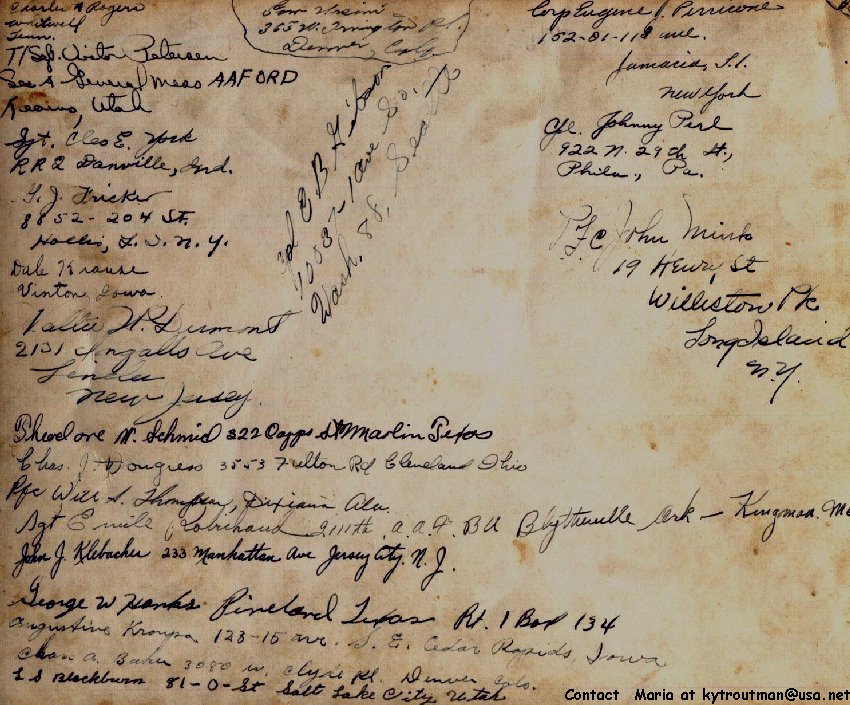 Charles N Rogers
Whitwell
Tenn.
T/Sgt. Victor Petersen
Sec A General Mess AAFORD
Kearns, Utah
Sgt. Cleo E. York
RR2 Danville, Ind.
T. J. Fricker
8852-204 St.
Hollis, L.I. N.Y.
Dale Krause
Vinton Iowa
W. Dermont
2131 Ingalls Ave
Linden
New Jersey
Theodore W. Schmid 322 Capps St Marlin Texas
Chas. J. Dougress 3553 Fulton Rd Cleveland Ohio
Pfc Will S. Thompson, Dixiana Ala.
Sgt Emile Robichaud 2111th A.A.F. BU Blytheville Ark - Kingman
John J. Klebacher 233 Manhattan Ave Jersey City, N.J.
George W Hanks Pineland Texas Rt. 1 Box 134
Augustine Kroupa 123-15 ave. S.E. Cedar Rapids, Iowa
Chas A. Baker 3080 W. Clyde Pl. Denver Colo.
L S Blackburn 81-O-St Salt Lake City, Utah
365 W. Irvington Pl.
Denver, Colo
E B Gibson
10032-1 Ave So.
Seattle
88, Wash.
Corp Eugene J. Perricone
152-01-118 ave.
Jamacia, L.I.
New York
Cpl. Johnny Perl
922 N. 29th St.,
Phila., Pa.
P.F.C. John Mink
19 Henry St
Williston Pk
Long Island
N.Y.
Contact Maria at kytroutman@usa.net